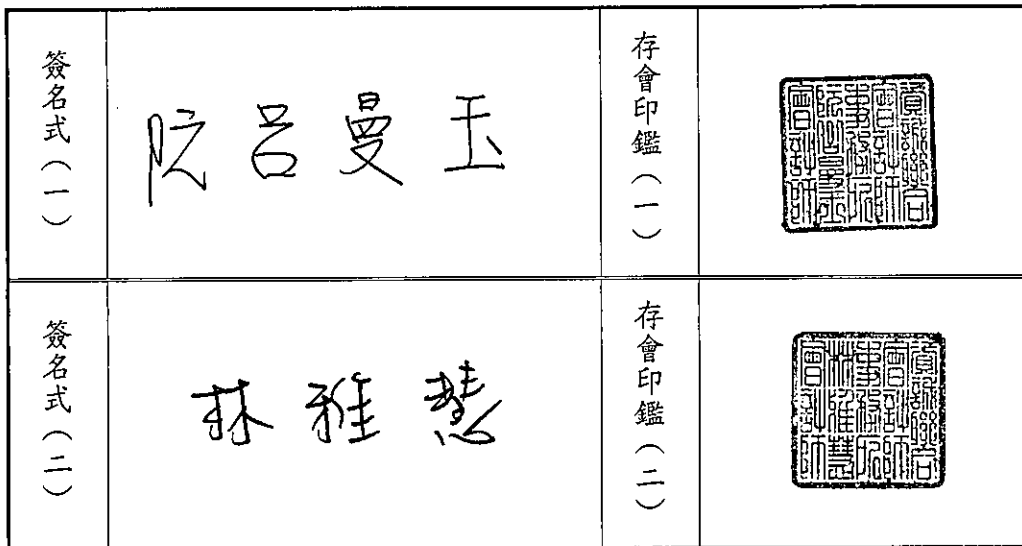 簽名式(一)
阮呂曼玉
存會印鑑(一)
資誠聯合
會計師
事務所
阮呂曼玉
會計師
簽名式(二)
林雅慧
存會印鑑(二)
資誠聯合
會計師
事務所
林雅慧
會計師